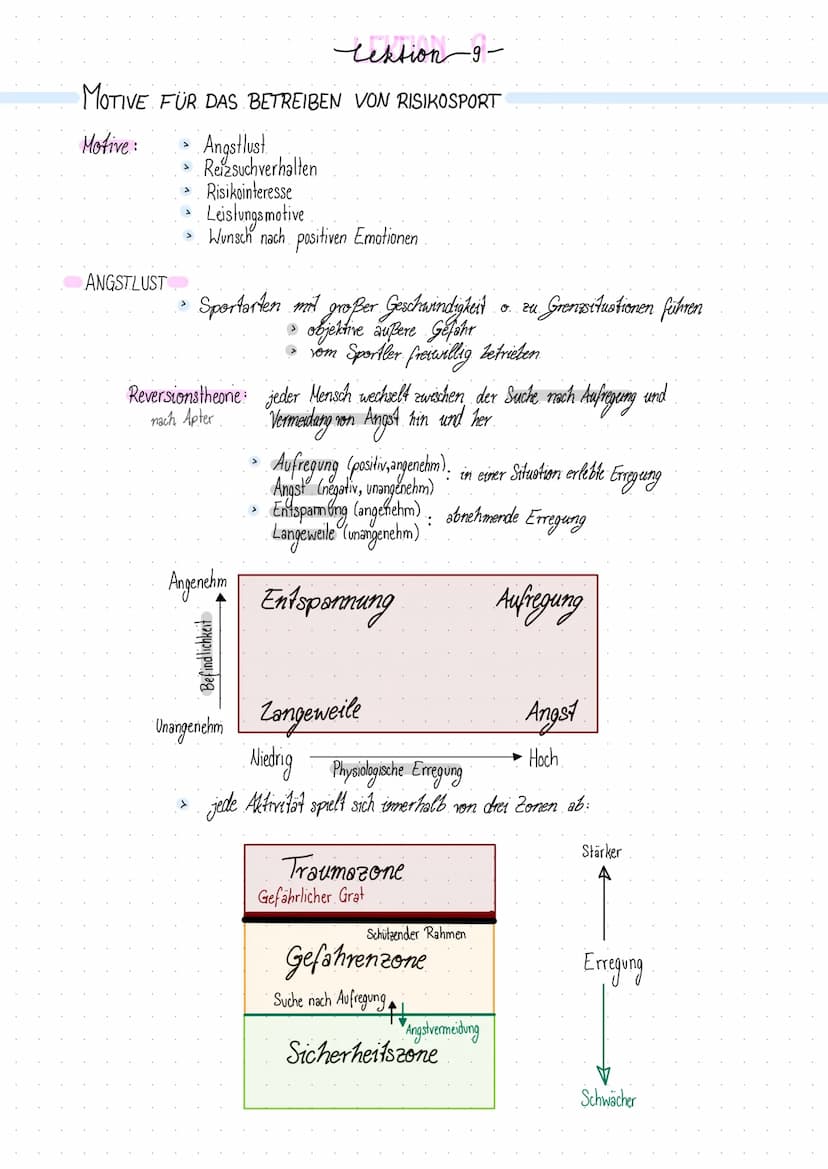 Lektion 9
MOTIVE FÜR DAS BETREIBEN VON RISIKOSPORT
Motive:
> Angstlust
> Reizsuchverhalten
> Risikointeresse
> Leistungsmotive
> Wunsch nach positiven Emotionen
ANGSTLUST
> Sportarten mit großer Geschwindigkeit o. zu Grenzsituationen führen
> objektive äußere Gefahr
> vom Sportler freiwillig betrieben
Reversionstheorie: jeder Mensch wechselt zwischen der Suche nach Aufregung und
nach Apter Vermeidung von Angst hin und her
> Aufregung (positiv, angenehm) : in einer Situation erlebte Erregung
Angst (negativ, unangenehm)
> Entspannung (angenehm) : abnehmende Erregung
Langeweile (unangenehm)
Angenehm
Entspannung Aufregung
Befindlichkeit
Langeweile Angst
Unangenehm
Niedrig Physiologische Erregung Hoch
> jede Aktivität spielt sich innerhalb von drei Zonen ab:
Traumazone
Gefährlicher Grat
Schützender Rahmen
Gefahrenzone
Suche nach Aufregung
Angstvermeidung
Sicherheitszone
Stärker
Erregung
Schwächer